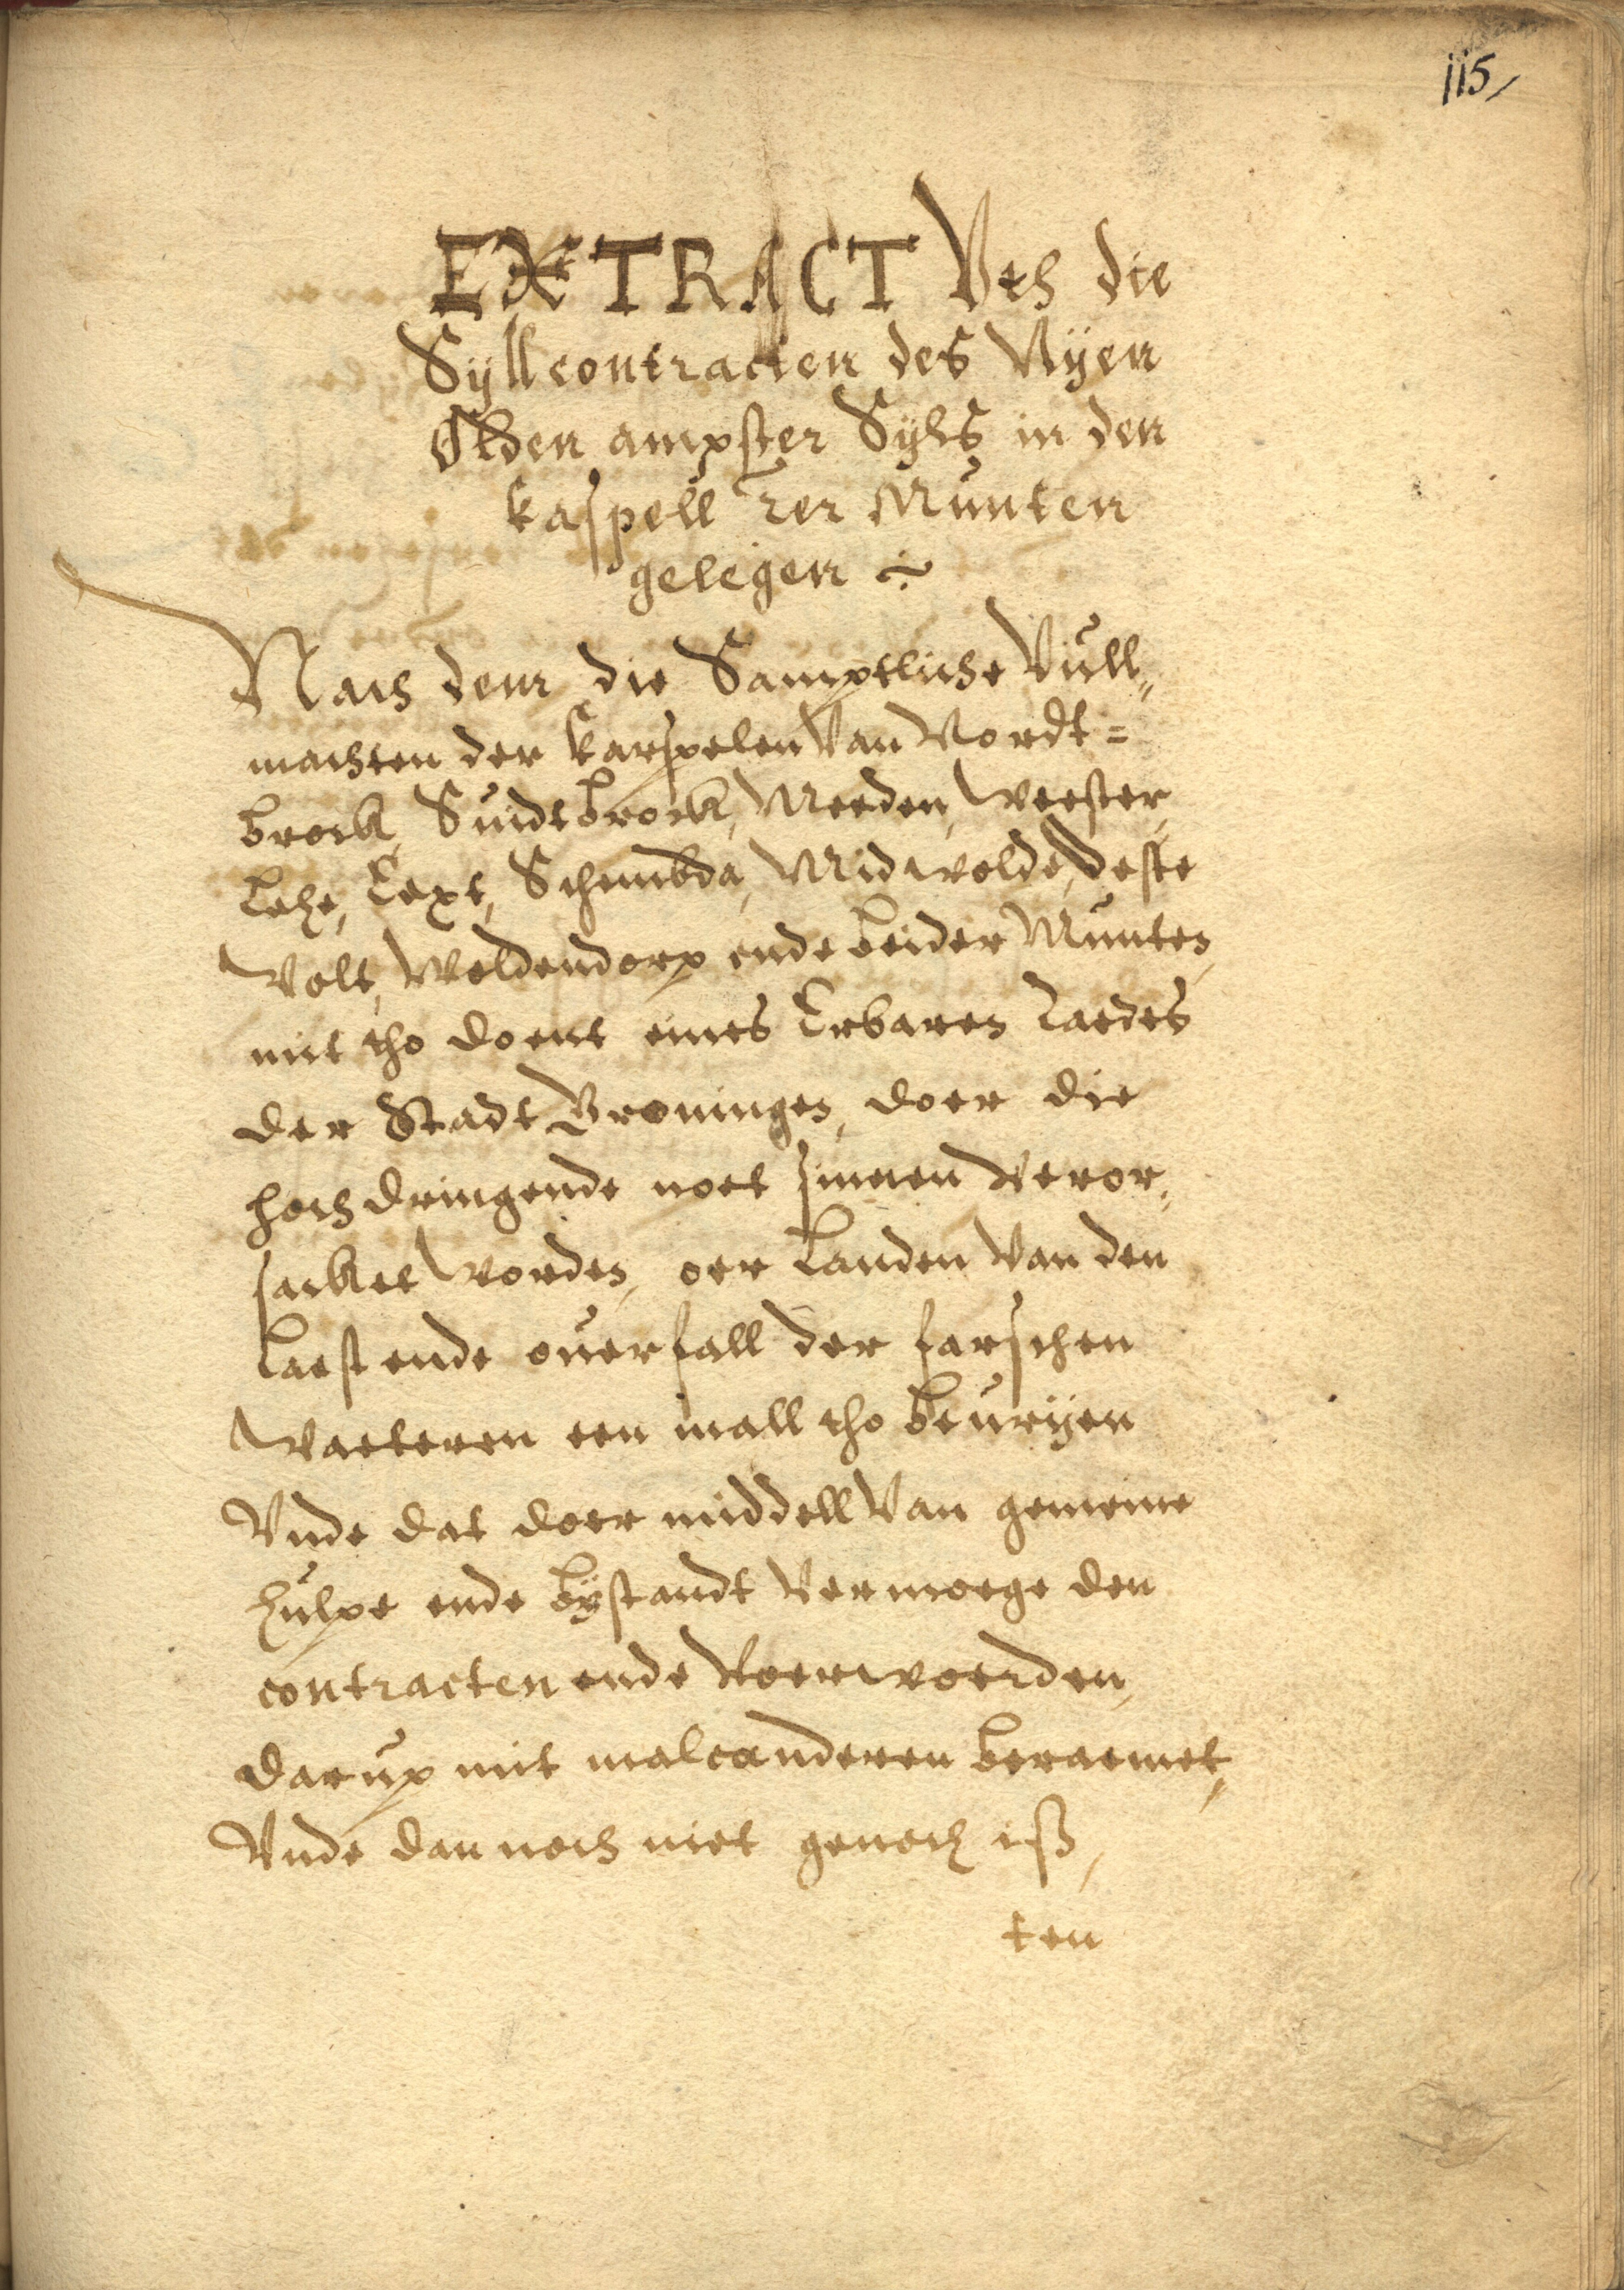 115
EXTRACT Uth die
Syllcontracten des Nyen
Olden ampster Syls in den
kaspell Ter Munten
gelegen
Nach dem die Samptliche Vull„
machten der Karspelen Van Nordt=
brock, Suidtbrock, Meeden, Weester
Lehe, Eext, Schembda, Midwolde, Oeste
Wolt, Woldendorp ende beider Munten
mit tho doent eines Erbaren Raedes
der Stadt Groningen, doer die
hoch dringende noet sinnen veror„
sacket worden, oer Landen Van den
Laest ende ouerfall der farschen
Waeteren een mall tho beuryen
Vnde dat doer middell Van gemeine
hulpe ende bystandt Vermoege den
contracten ende Voerwoerden,
darup mit malcanderen beraemet,
Vnde dan noch niet genoch iß,
ten